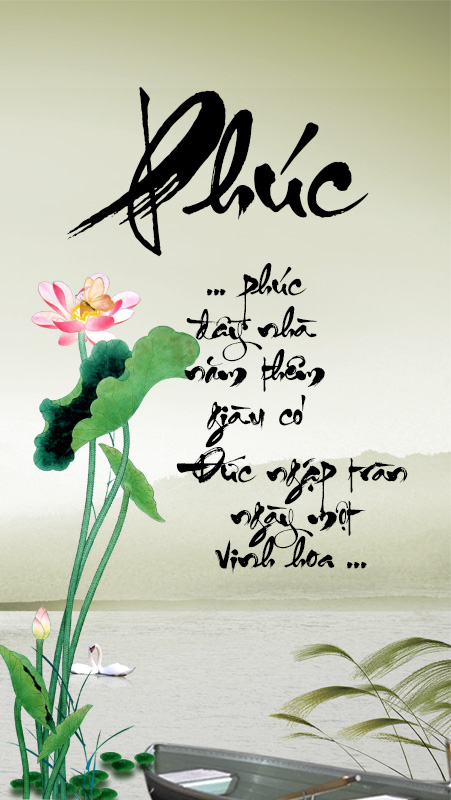 Phúc
... phúc
đầy nhà
năm thêm
giàu có
Đức ngập tràn
ngày một
vinh hoa ...